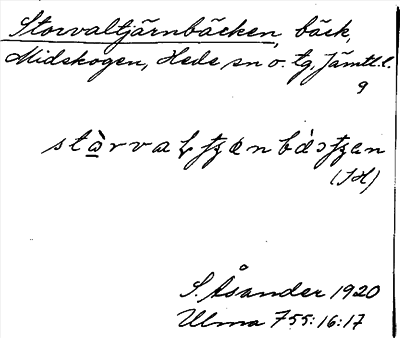 Storvaltjärnbäcken, bäck,
Midskogen, Hede sn o. tg, Jämtl. l.
9
(JH)
S. Åsander 1920
Ulma 755:16:17